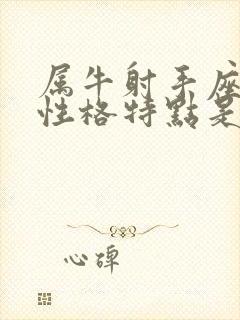 属牛射手座
性格特點是
心琕